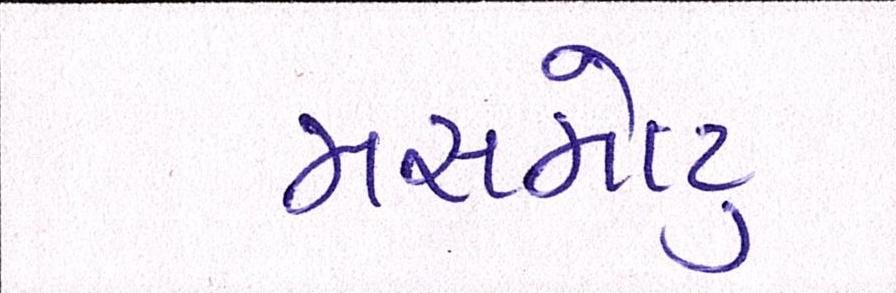 મસમોટુ